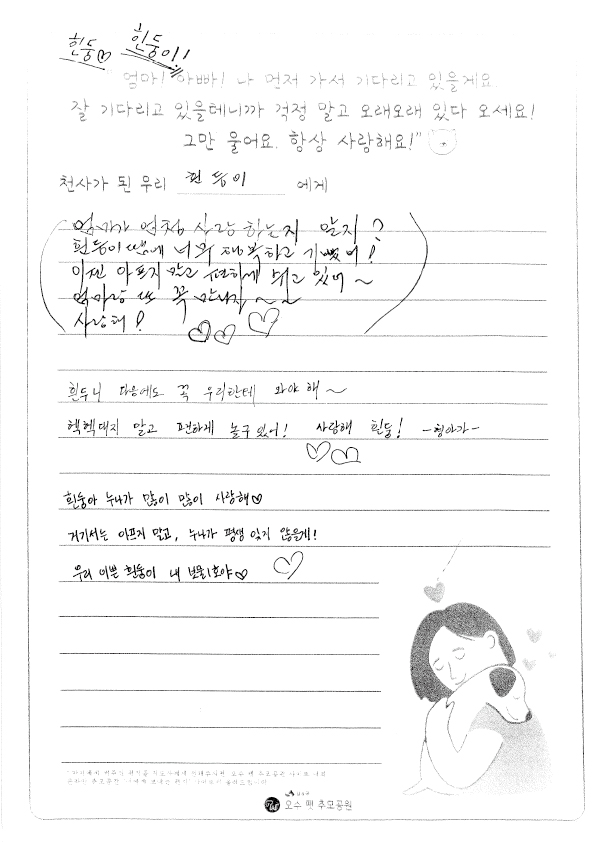 흰둥♡ 흰둥이!
"엄마! 아빠! 나 먼저 가서 기다리고 있을게요.
잘 기다리고 있을테니까 걱정 말고 오래오래 있다 오세요!
그만 울어요. 항상 사랑해요!"
천사가 된 우리 흰둥이 에게
엄마가 엄청 사랑하는지 알지?
흰둥이 땜에 너무 행복하고 기뻤어!
이젠 아프지 말고 편하게 쉬고 있어~
엄마랑 또 꼭 만나자~~
사랑해! ♡♡♡
흰두니 다음에도 꼭 우리한테 와야 해~
헥헥대지 말고 편하게 놀구 있어! 사랑해 흰둥! -형아가-
♡♡
흰둥아 누나가 많이 많이 사랑해♡
거기서는 아프지 말고, 누나가 평생 잊지 않을게!
우리 이쁜 흰둥이 내 보물1호야♡ ♡
오수 펫 추모공원